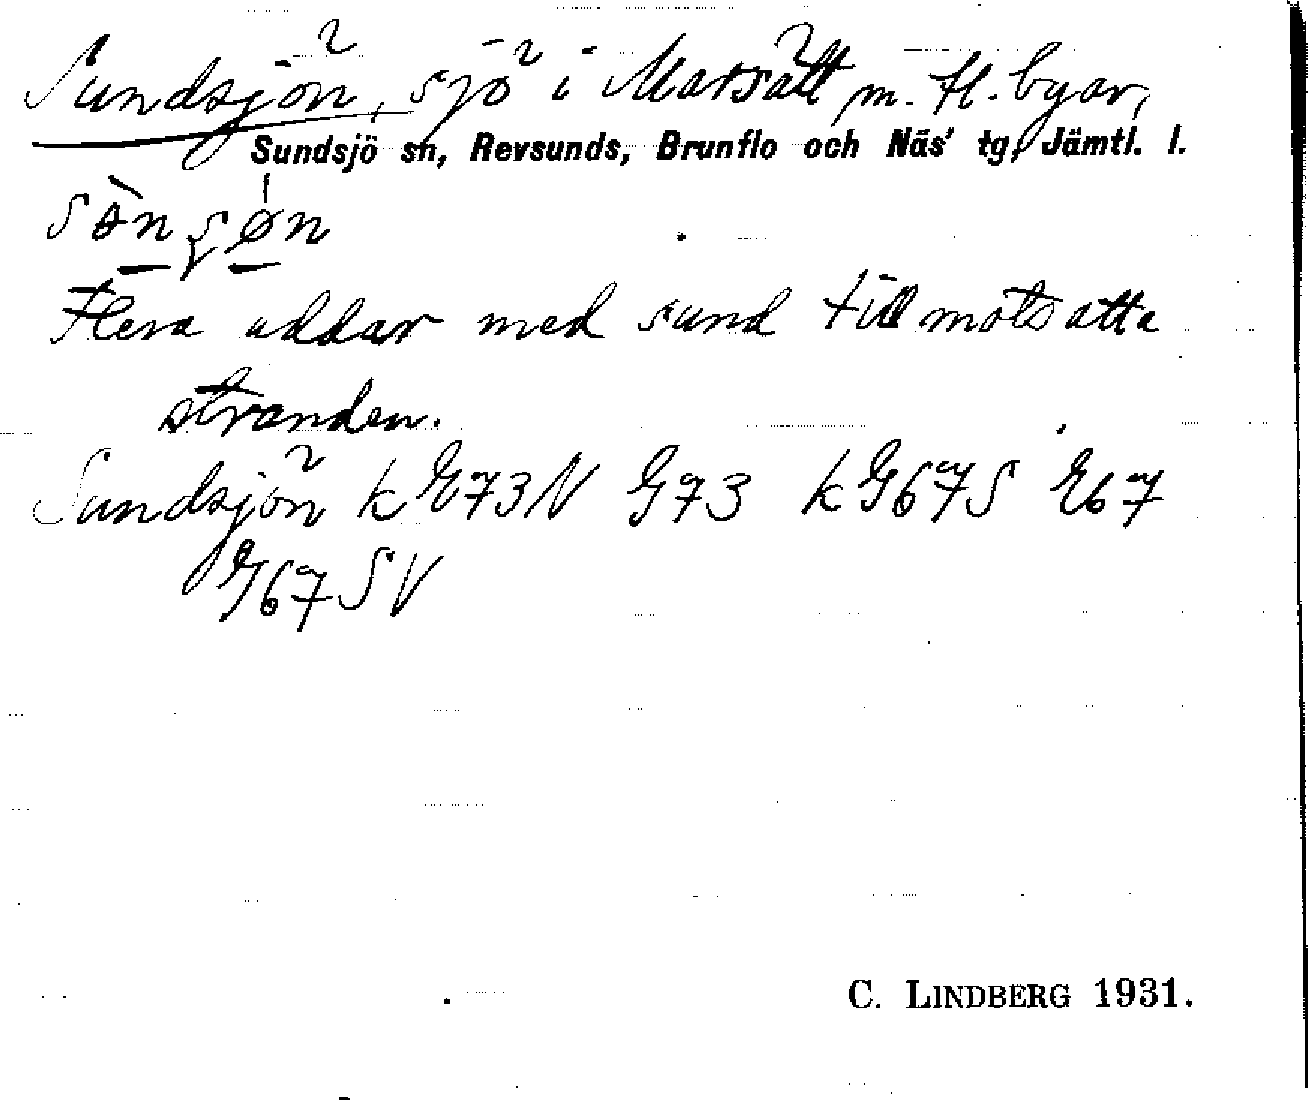 Sundsjön, sjö i Marsätt m. fl. byar,
Sundsjö sn, Revsunds, Brunflo och Näs' tg, Jämtl. l.
Flera uddar med sund till motsatta
stranden.
Sundsjön k E73N G73 k G67S E67
G67SV
C. LINDBERG 1931.